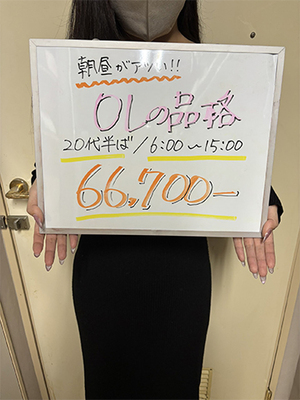 朝昼がアツい!!
OLの品格
20代半ば/6:00〜15:00
66,700-